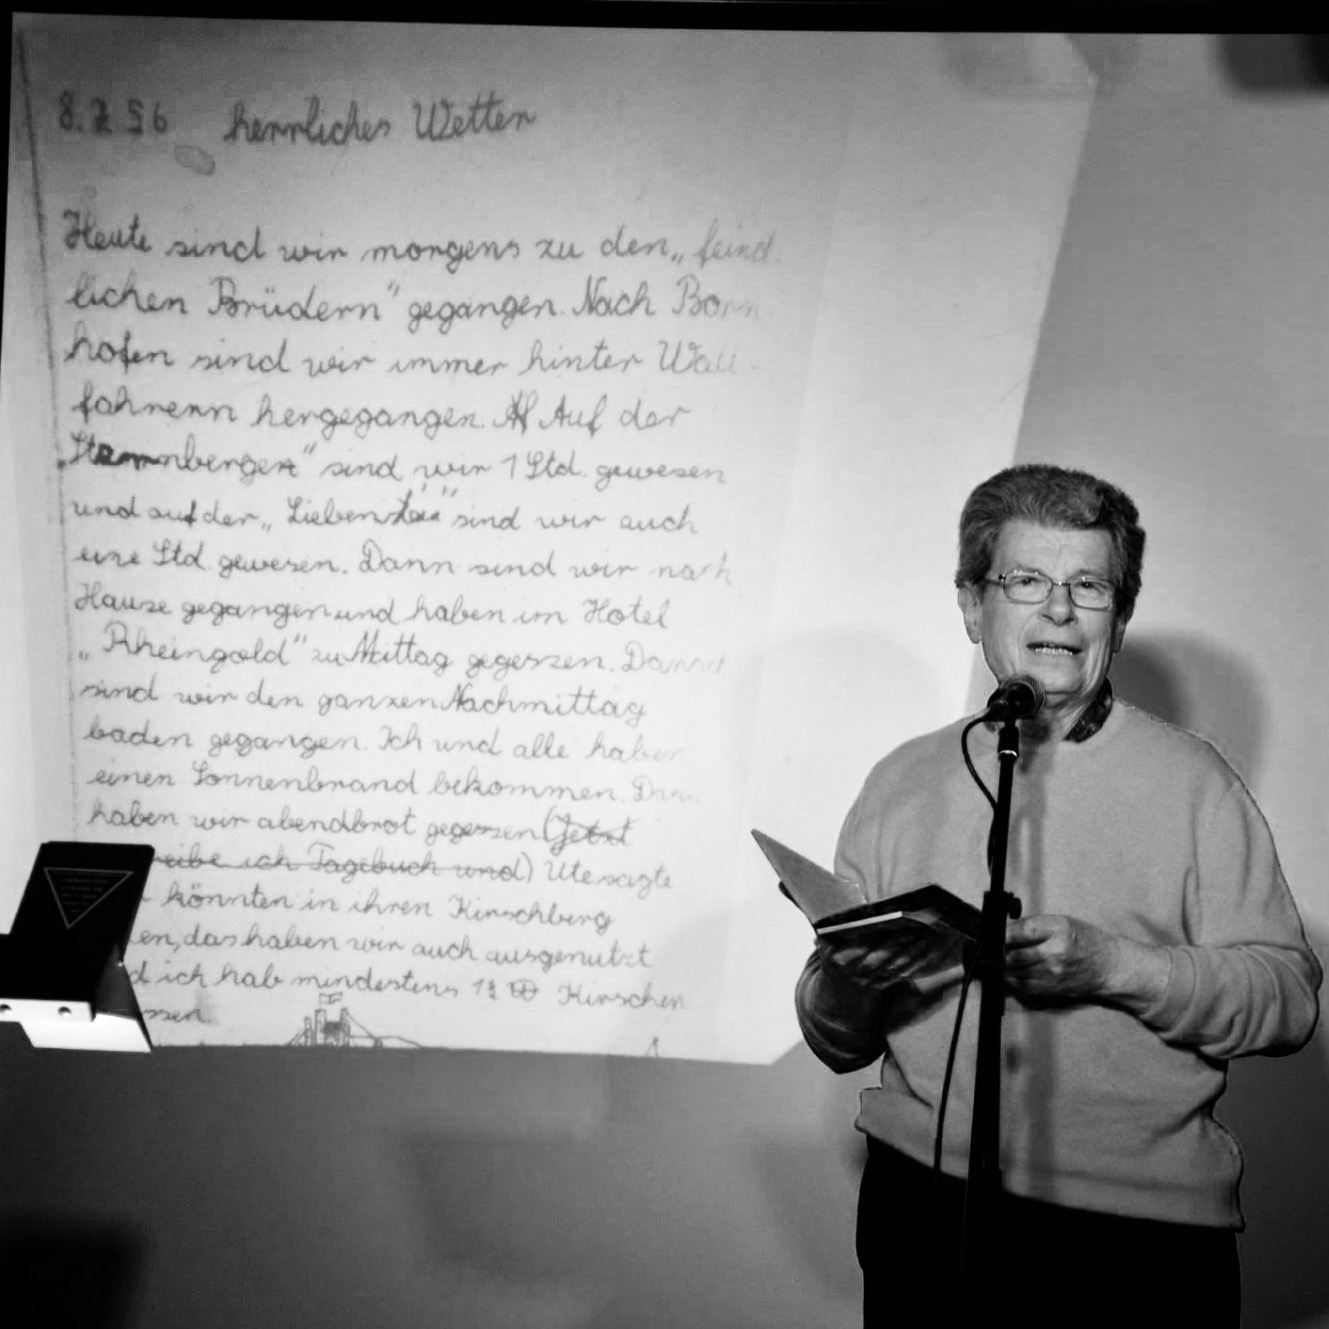 8.7 56 herrliches Wetter
Heute sind wir morgens zu den „feind
lichen Brüdern" gegangen. Nach Born
hofen sind wir immer hinter Wall-
fahrern hergegangen. Auf der
sind wir 1 Std. gewesen
und auf der „Liebenstein" sind wir auch
eine Std. gewesen. Dann sind wir nach
Hause gegangen und haben im Hotel
„Rheingold" zu Mittag gegessen. Dann
sind wir den ganzen Nachmittag
baden gegangen. Ich und alle haben
einen Sonnenbrand bekommen. Dann
haben wir abendbrot gegessen (Jetzt
reibe ich Tagebuch und) Ute sagte
könnten in ihren Kirschberg
en, das haben wir auch ausgenutzt
d ich hab mindestens Kirschen
ssen